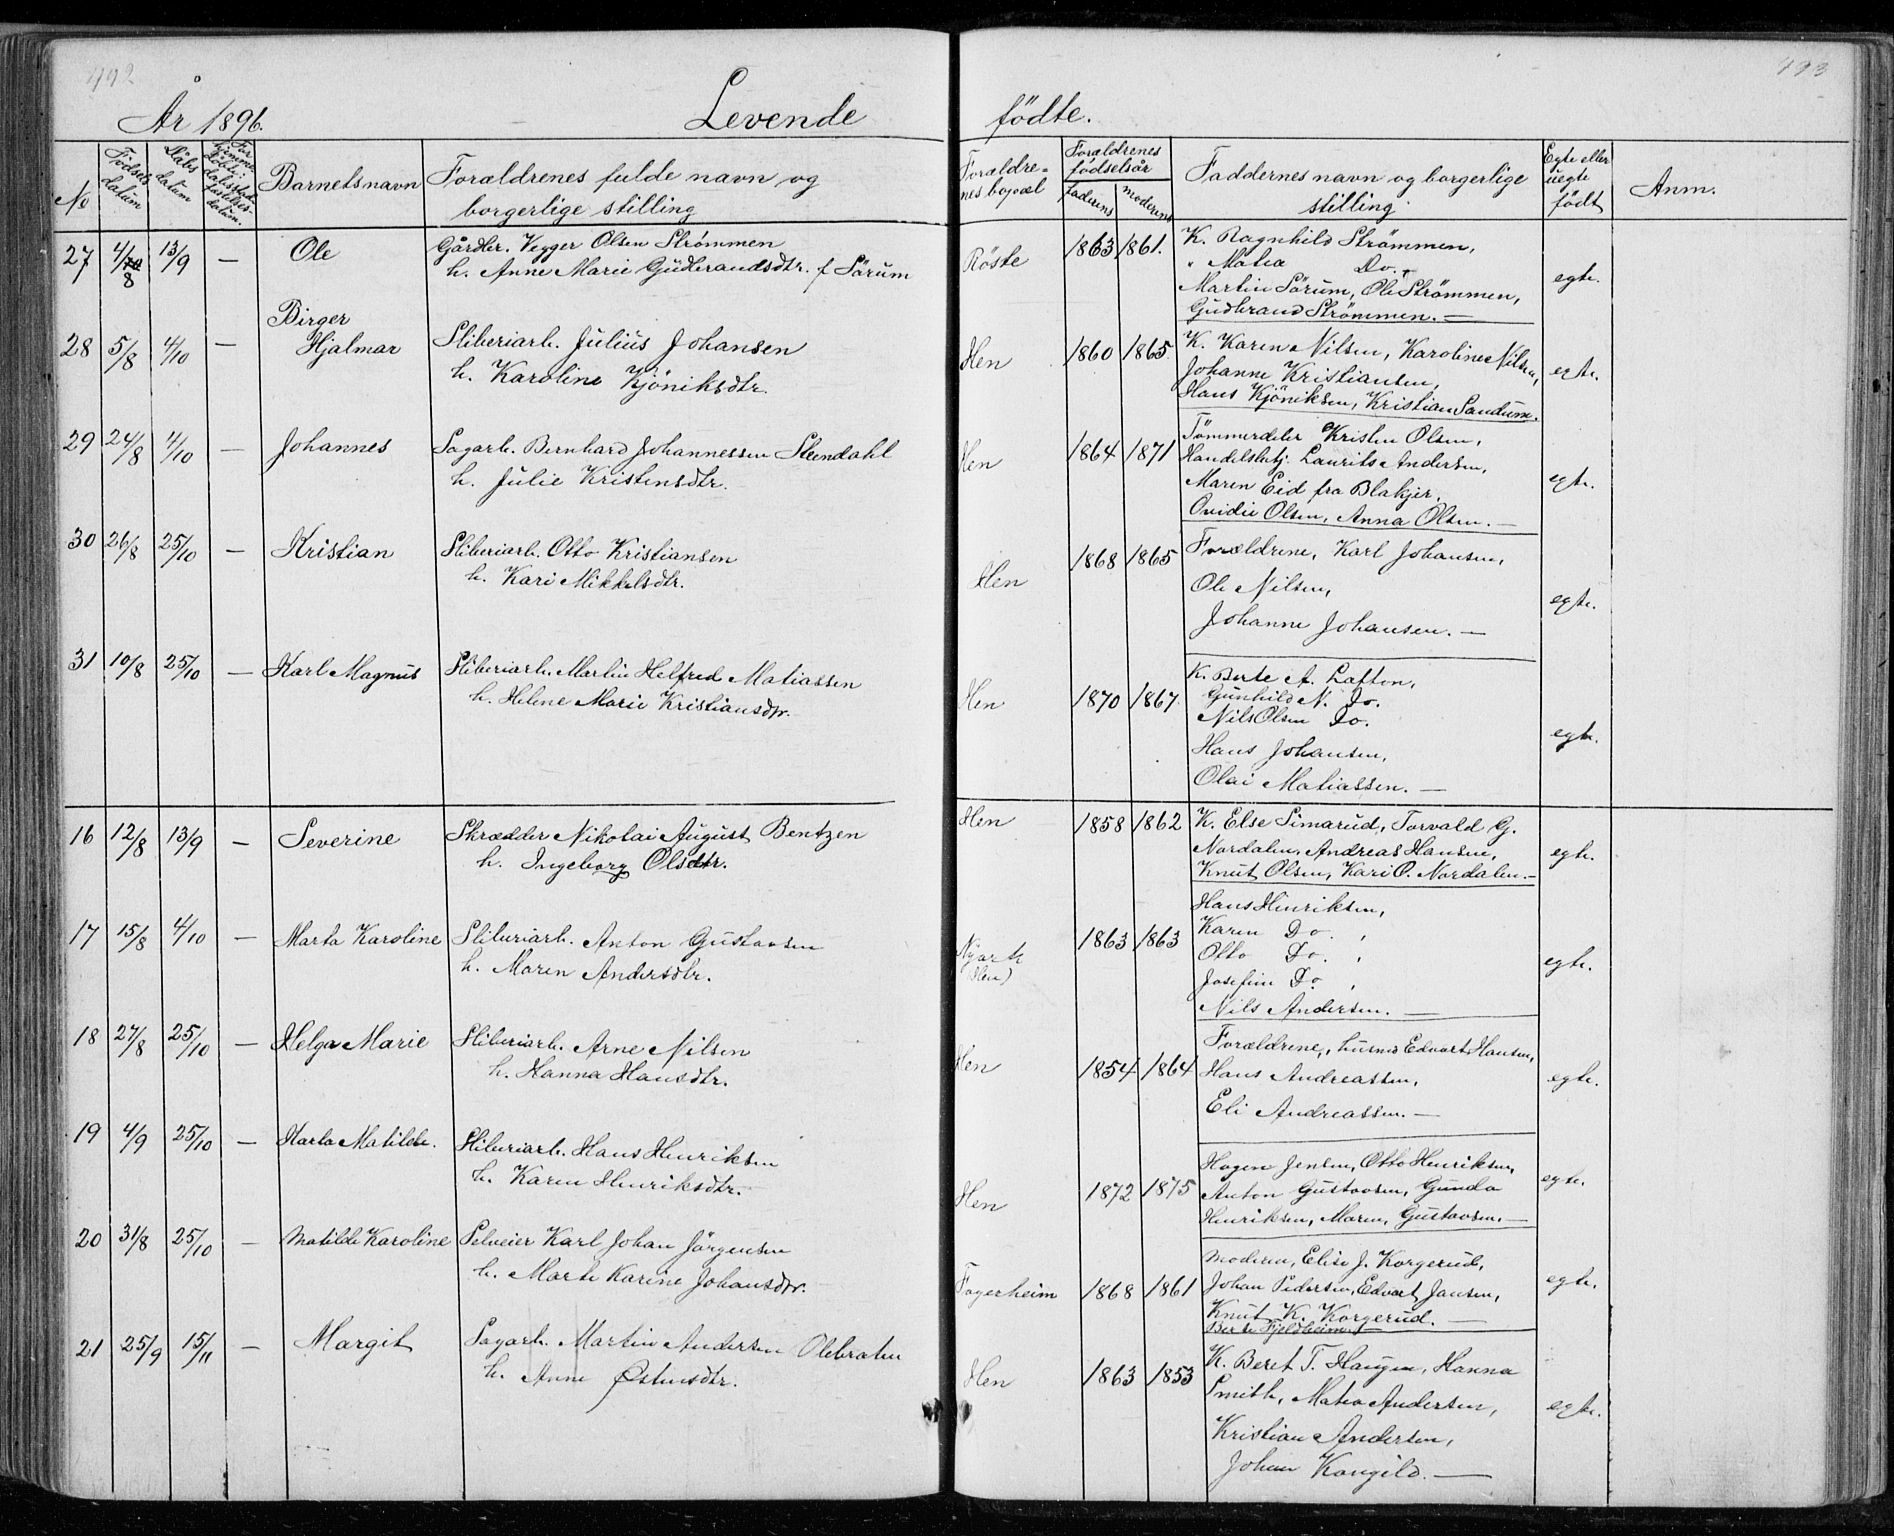 492
493
År 1896.
Levende
fødte.
No
Födsels datum
Dåbs datum
Barnets navn
Forældrenes fulde navn og
borgerlige stilling
Forældre-
nes bopæl
Forældrenes
fødselsår
faderens
moderens
Faddernes navn og borgerlige
stilling
Egte eller
uegte
født
Anm.
27 4/8 13/9 — Ole
Gårdbr. Vegger Olsen Strömmen
h. Anne Marie Gudbrandsdtr. f Sörum
Röste 1863 1861.
K. Ragnhild Strömmen,
" Matea Do.
Martin Sörum, Ole Strömmen,
Gudbrand Strömmen. —
egte.
28 5/8 4/10 — Birger
Hjalmar
Sliberiarb. Julius Johansen
h. Karoline Kjöniksdtr.
Hen 1860 1865
K. Karen Nilsen, Karoline Nilsen,
Johanne Kristiansen,
Hans Kjöniksen, Kristian Sandum.
egte.
29 24/8 4/10 — Johannes
Sagarb. Bernhard Johannessen Steendahl
h. Julie Kristensdtr.
Hen 1864 1871
Tömmerdeler Kristen Olsen,
Handelsbetj. Laurits Andersen,
Maren Eid fra Blakjer,
Ovidie Olsen, Anna Olsen. —
egte.
30 26/8 25/10 — Kristian
Sliberiarb. Otto Kristiansen
h. Kari Mikkelsdtr.
Hen 1868 1865
Forældrene, Karl Johansen,
Ole Nilsen,
Johanne Johansen. —
egte.
31 10/8 25/10 — Karl Magnus
Sliberiarb. Martin Helfred Matiassen
h. Helene Marie Kristiansdtr.
Hen 1870 1867
K. Berte A. Lafton,
Gunhild N. Do.
Nils Olsen Do.
Hans Johansen,
Olai Matiassen. —
egte.
16 12/8 13/9 — Severine
Skrædder Nikolai August Bentzen
h. Ingeborg Olsdtr.
Hen 1858 1862
K. Else Simarud, Torvald G.
Nordalen, Andreas Hansen,
Knut Olsen, Kari O. Nordalen. —
egte.
17 15/8 4/10 — Marta Karoline
Sliberiarb. Anton Gustavsen
h. Maren Andersdtr.
(Hen) 1863 1863
Hans Henriksen,
Karen Do. ,
Otto Do. ,
Josefine Do. ,
Nils Andersen. —
egte.
18 27/8 25/10 — Helga Marie
Sliberiarb. Arne Nilsen
h. Hanna Hansdtr.
Hen 1854 1864
Forældrene, husmd Edvart Hansen,
Hans Andreassen,
Eli Andreassen. —
egte.
19 4/9 25/10 — Karla Matilde.
Sliberiarb. Hans Henriksen
h. Karen Henriksdtr.
Hen 1872 1875
Hagen Jensen, Otto Henriksen,
Anton Gustavsen, Gunda
Henriksen, Maren Gustavsen. —
egte.
20 31/8 25/10 — Matilde Karoline
Pelveier Karl Johan Jörgensen
h. Marte Karine Johansdtr.
Fagerheim 1868 1861
Moderen, Elise J. Korgerud,
Johan Pedersen, Edvart Jansen,
Knut K. Korgerud. —
Berte Fjeldheim. —
egte.
21 25/9 15/11 — Margit
Sagarb. Martin Andersen Olebraten
h. Anne Østensdtr.
Hen 1863 1853
K. Beret T. Haugen, Hanna
Smith, Matea Andersen,
Kristian Andersen,
Johan Kongild. —
egte.